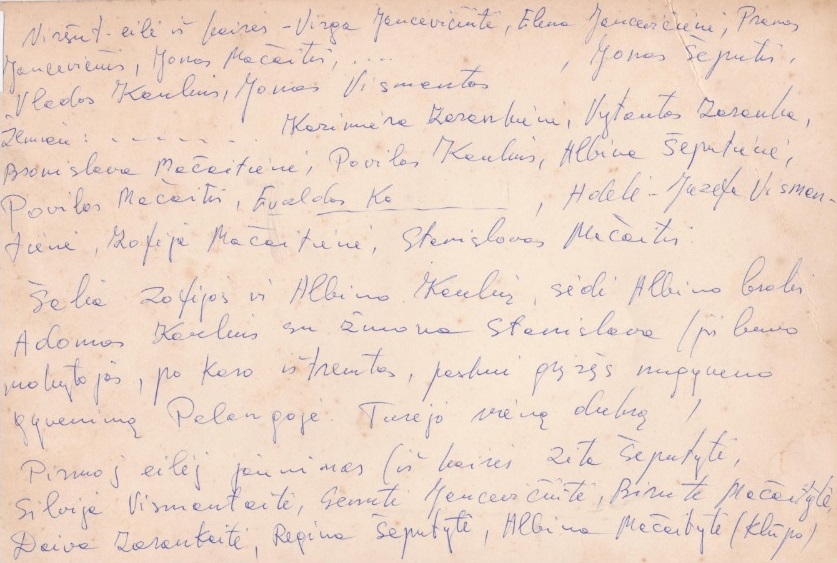 Viršut. eilė iš kairės - Virga Jancevičiūtė, Elena Jancevičienė, Pranas
Jancevičius, Jonas Mačaitis, .... , Jonas Šeputis,
Vladas Kaulius, Jonas Vismantas
Žemiau: - - - - - - Kazimiera Zarankienė, Vytautas Zaranka,
Bronislava Mačaitienė, Povilas Kaulius, Albina Šeputienė,
Povilas Mačaitis, Evaldas Ka________ , Adelė - Juzefa Visman-
tienė, Zofija Mačaitienė, Stanislovas Mačaitis
Šalia Zofijos ir Albino Kaulių, sėdi Albino brolis
Adomas Kaulius su žmona Stanislava (ji buvo
mokytojas, po karo ištremtas, paskui grįžęs nugyveno
gyvenimą Palangoje. Turėjo vieną dukrą)
Pirmoj eilėj jaunimas (iš kairės Zita Šeputytė,
Silvija Vismantaitė, Genutė Jancevičiūtė, Birutė Mačaitytė,
Daiva Zarankaitė, Regina Šeputytė, Albina Mačaitytė (klūpo)